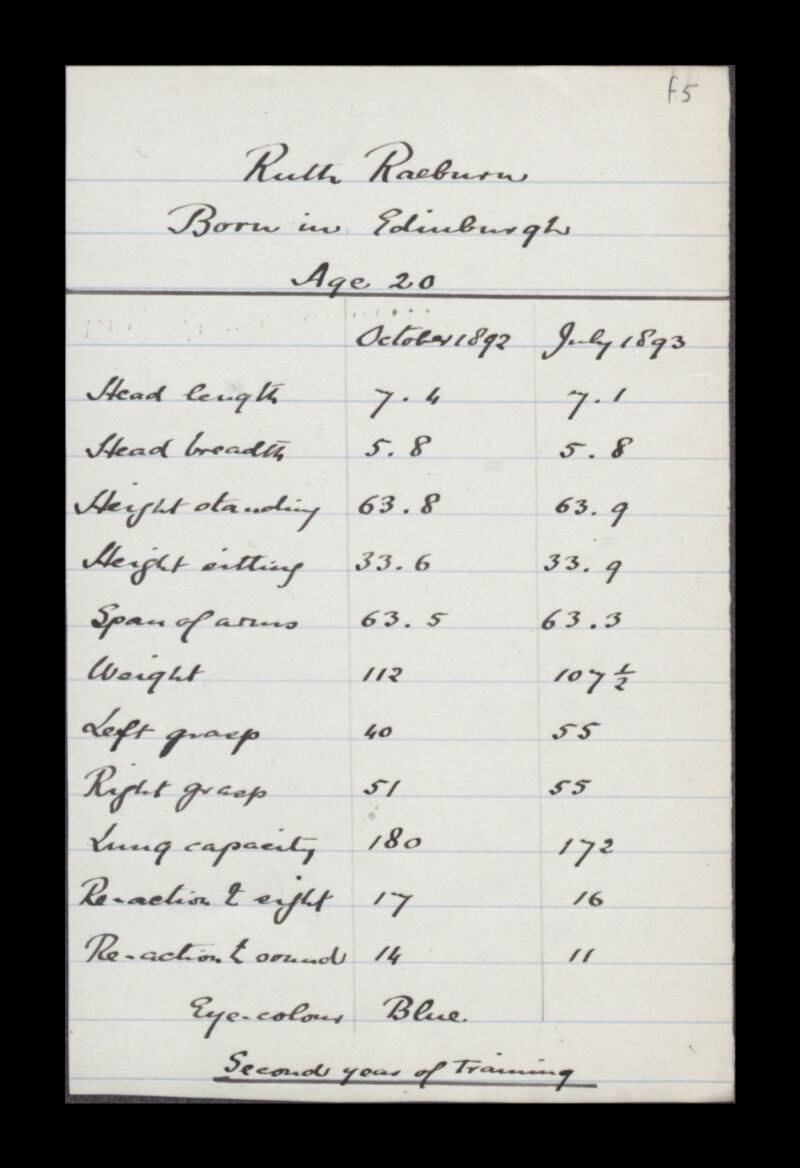 f.5
Ruth Raeburn
Born in Edinburgh
Age 20
October 1892 July 1893
Head length 7.4 7.1
Head breadth 5.8 5.8
Height standing 63.8 63.9
Height sitting 33.6 33.9
Span of arms 63.5 63.3
Weight 112 107 1/2
Left grasp 40 55
Right grasp 51 55
Lung capacity 180 172
Re-action to sight 17 16
Re-action to sound 14 11
Eye-colour Blue.
Second year of Training